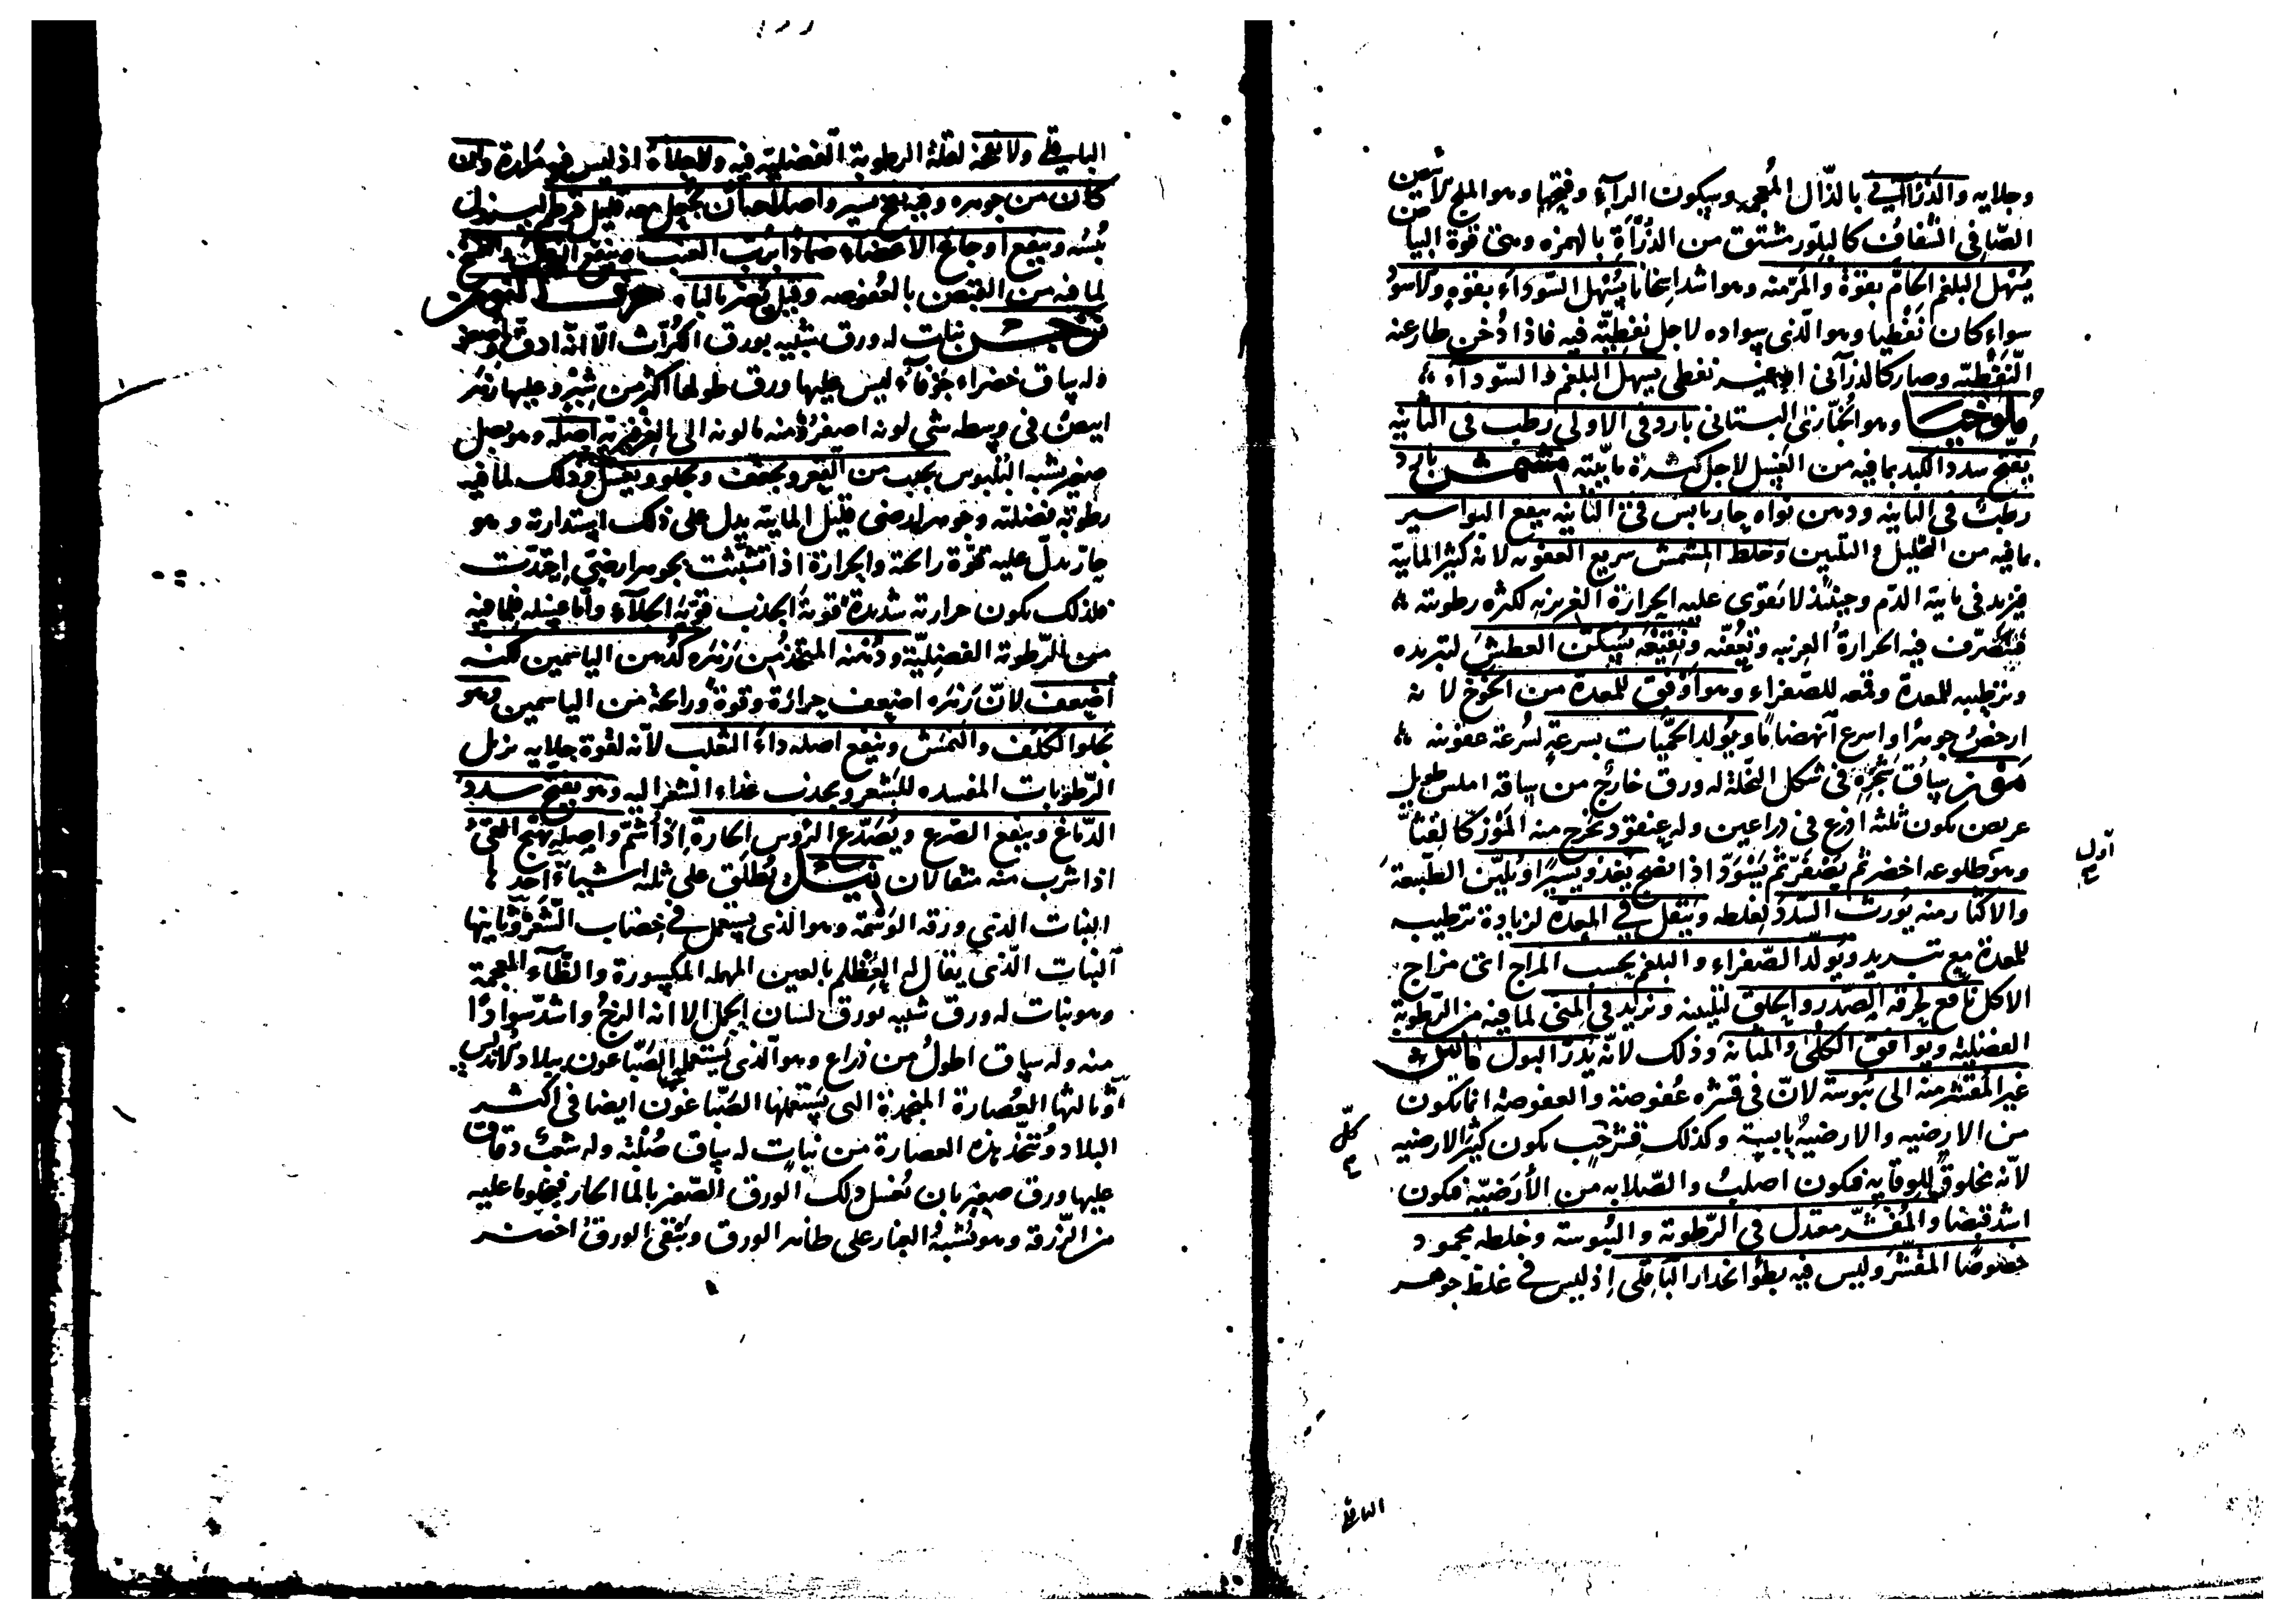 وجلايه والذرآني بالذّال المُعجمه وبسكون الرآء وفتحها وهو الملح الابيض
الصّافي الشّفاف كالبلّور مشتق من الذُرْأة بالهمزه وهى قوة البياض
يُسْهل البلغم الخامّ بقوة والمرّ منه وهو اشد اسخانا يُسْهل السّوداء بقوه والاسود
سواء كان نفطيا وهو الّذى سواده لاجل نفطيّة فيه فاذا دُخن طار عنه
النّفطيّه وصار كالذرآنى او غيـر نفطى يسهل البلغم والسّودآء
ملوخيا وهو الخبّازى البستانى بارد فى الاولى رطب فى الثانيه
يفتّح سدد الكبد بما فيه من الغسل لاجل كثرة مائيّته مشمش بارد
رطب فى الثانيه ودهن نواه حار يابس فى الثانيه ينفع البواسير
بما فيه من التحليل و التليين وخلط المشمش سريع العفونه لانه كثير المائية
فيزيد فى مائية الدّم وحينئذ لا تقوى عليه الحرارة الغريزيه لكثره رطوبته
فتتصّرف فيه الحرارةُ الغريبه وتُعفّنه ونقيعُه يُسكّن العطش لتبريده
وترطيبه للمعدة وقمعه للصّفراء وهو اوفق للمعدة من الخوخ لانه
ارخصُ جوهرًا واسرع انهضامًا ويُولد الحُمّيات بسرعةٍ لسُرعة عفونته
موز ساق شجره فى شكل النخلة له ورق خارج من ساقه املس طويل
عريض يكون ثلثة اذرع فى ذراعين وله عنقود يخرج منه الموز كالقثا
وهو طلوعه اخضر ثم يَصْفرّ ثم يَسْوَدّ اذا نضج يغذو يسيرًا ويُليّن الطّبيعة
والاكثار منه يُورث السّدد لغلظه ويثقل في المعدة لزيادة ترطيبه
للمعدة مع تبـريد ويُولّد الصّفراء والبلغم بحسب المزاج اى مزاج
الاكل نافع لحرقة الصّدر والحلق لتليينه ويزيد في المنى لما فيه من الرّطوبة
الفضليّة ويوافق الكلى والمثانه وذلك لانّه يُدرّ البول ماش
غير المقشر منه الى يُبوسة لانّ في قشره عُفوصة والعفوصة انما تكون
من الارضيه والارضيةُ يابسة وكذلك قشر حَبٍ يكون كثير الارضيه
لانّه مخلوق للوقايه فيكون اصلب والصّلابه من الأرضيّة فيكون
اشد قبضا والمُقشّر معتدل فى الرّطوبة واليُبوسة وخلطه محمود
خصوصًا المقشّر وليس فيه بطؤ انحدار الباقلى اذ ليس فى غلظ جوهر
اول
كل
الباقلى
الباقلى ولا نفخه لقلة الرطوبة الفضليّة فيه ولا جلاؤه اذ ليس فيه مرارة وان
كان من جوهره وفيه نفخ يسير واصلاحه ان يجعل معه قليل قرطم ليزول
يُبسُه وينفع اوجاعَ الاعضاء ضمادًا برُب العنب وينفع الرضّ والفسخ
لما فيه من القبض بالعُفوصه وقيل يَضر بالباه حرف النون
نرجس نبات له ورق شبيه بورق الكُرّاث الّا انّه ادق واصغر
وله ساق خضراء جوفآء ليس عليها ورق طولها اكثر من شِبْر وعليها زهر
ابيض فى وسطه شى لونه اصفر ومنه ما لونه الى الفرفيريه اصله وهو بصل
صغير يشبه البُلبوس يجذب من القعر ويجفف ويجلو ويغسل وذلك لما فيه
رطوبة فضلية وجوهر ارضى قليل المايية يدل على ذلك استدارته وهو
حارّ يدلّ عليه قوّة رائحته والحرارة اذا تشبّثت بجوهر ارضىّ احتدّت
فلذلك يكون حرارته شديدة قوية الجذب قوّية الجلآء وأما غسله فلما فيه
من الرّطوبة الفضليّة ودُهنه المتخذ من زهَره كدُهن الياسمين لكنه
أضعف لانّ زهَره اضعف حرارة وقوة ورائحة من الياسمين وهو
يجلو الكَلَف والنَمش وينفع اصله داءَ الثعلب لأنه لقوة جلايه يزيل
الرّطوبات المفسده للشعر ويجذب غذاء الشعر اليه وهو يفتح سدد
الدّماغ وينفع الصرع ويُصَدّع الرؤس الحارة اذا شُمّ واصله يُهيّج القئ
اذا شرب منه مثقالان نيل ويُطلَق على ثلثة اشيـاء احدها
النبات الذى ورقه الوَسْمه وهو الذى يستعمل في خضاب الشّعر وثانيها
النبات الّذى يقال له العِظْلم بالعين المهمله المكسورة والظّآء المعجمة
وهو نبات له ورق شبيه بورق لسان الحمل الا انه الزجُ واشدّ سوادًا
منه وله ساق اطولُ من ذراع وهو الذى يستعمله الصّبّاغون ببلاد الاندلس
وثالثها العُصارة المنجمدة التى يَستعملها الصّباغون ايضا فى اكثـر
البلاد وتُتخّذ هذه العصارة من نبات له ساق صُلْبة وله شعبٌ دقاق
عليها ورق صغير بان تُغسل ذلك الورق الصّغير بالماء الحار فيجلو ما عليه
من الزّرقة وهو يُشبهُ الغبار على ظاهر الورق ويَبْقى الورق اخضـر